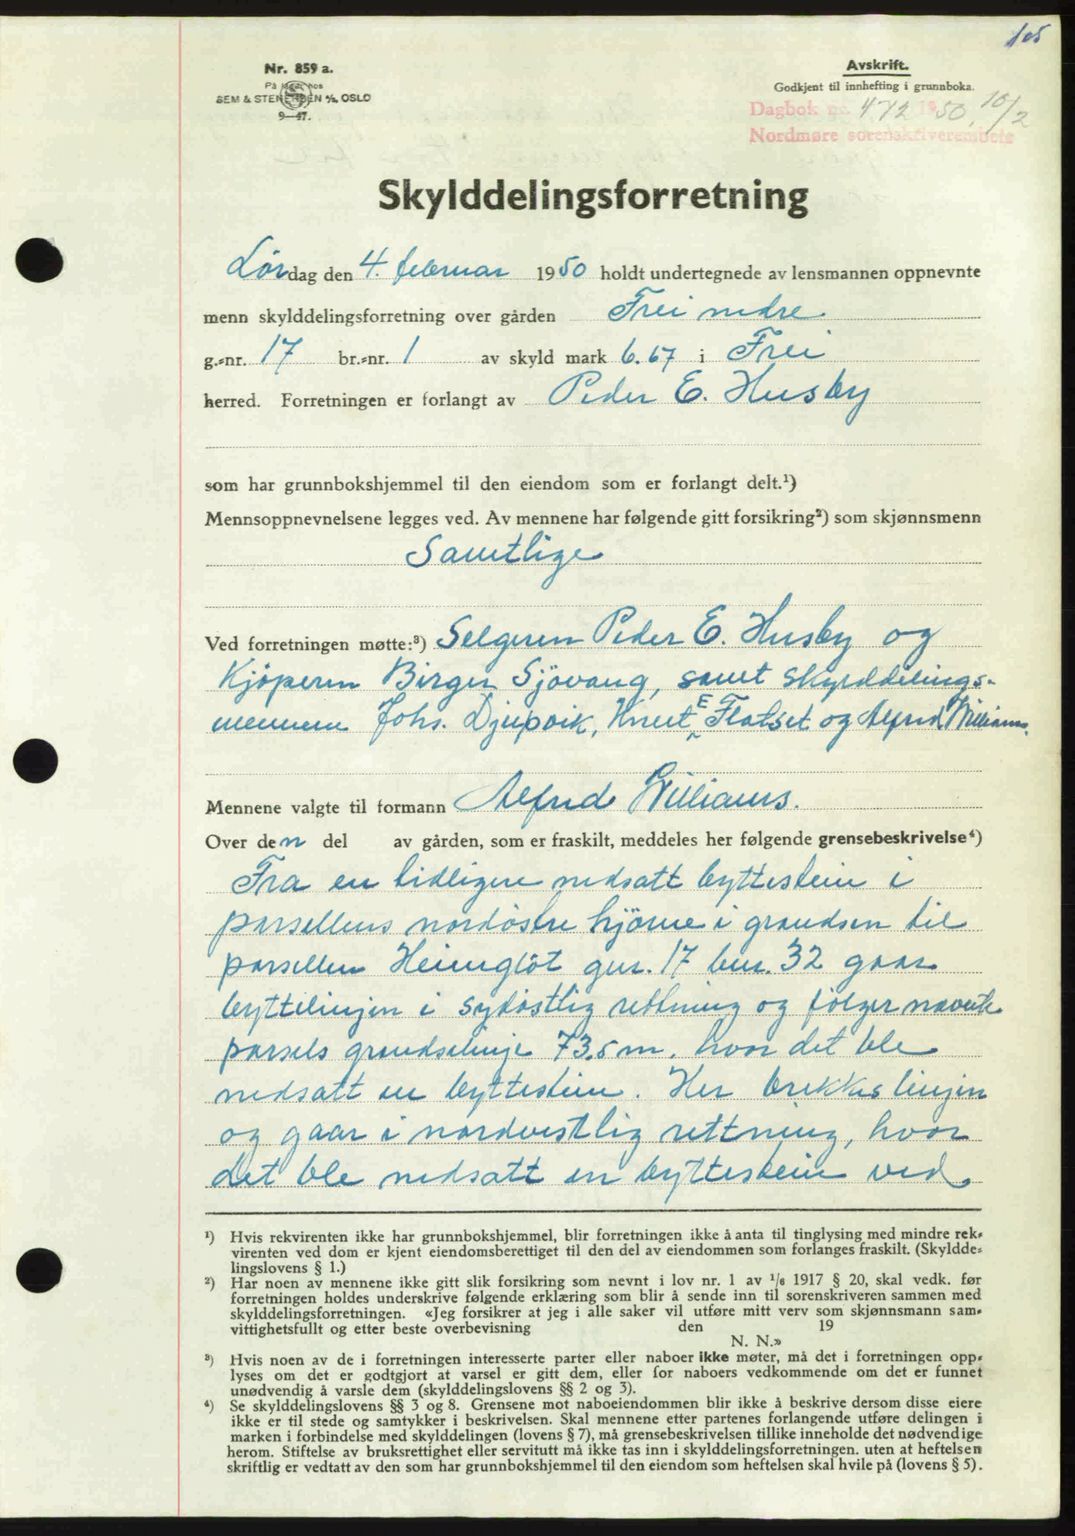 105
Nr. 859 a.
På lager hos
SEM & STENERSEN A/S, OSLO
9—47.
Avskrift.
Godkjent til innhefting i grunnboka.
Dagbok nr. 472 1950, 10/2
Nordmøre sorenskriverembete
Skylddelingsforretning
Lørdag den 4. februar 1950 holdt undertegnede av lensmannen oppnevnte
menn skylddelingsforretning over gården Frei nedre
g.-nr. 17 br.-nr. 1 av skyld mark 6.67 i Frei
herred. Forretningen er forlangt av Peder E. Husby
som har grunnbokshjemmel til den eiendom som er forlangt delt.¹)
Mennsoppnevnelsene legges ved. Av mennene har følgende gitt forsikring²) som skjønnsmenn
Samtlige
Ved forretningen møtte:³) Selgeren Peder E. Husby og
Kjøperen Birger Sjövang, samt skylddelings-
mennene Johs. Djupvik, Knut E Flatset og Alfred Williams.
Mennene valgte til formann Alfred Williams.
Over den del av gården, som er fraskilt, meddeles her følgende grensebeskrivelse⁴)
Fra en tidligere nedsatt byttestein i
parsellens nordöstre hjörne i grændsen til
parsellen Heimglöt gnr. 17 bnr. 32 gaar
byttelinjen i sydöstlig rettning og fölger nævnte
parsels grændselinje 73.5 m. hvor det ble
nedsatt en byttestein. Her brekkes linjen
og gaar i nordvestlig rettning, hvor
det ble nedsatt en byttestein ved
¹) Hvis rekvirenten ikke har grunnbokshjemmel, blir forretningen ikke å anta til tinglysing med mindre rek-
virenten ved dom er kjent eiendomsberettiget til den del av eiendommen som forlanges fraskilt. (Skyldde-
lingslovens § 1.)
²) Har noen av mennene ikke gitt slik forsikring som nevnt i lov nr. 1 av 1/6 1917 § 20, skal vedk. før
forretningen holdes underskrive følgende erklæring som blir å sende inn til sorenskriveren sammen med
skylddelingsforretningen. «Jeg forsikrer at jeg i alle saker vil utføre mitt verv som skjønnsmann sam-
vittighetsfullt og etter beste overbevisning den 19
N. N.»
³) Hvis noen av de i forretningen interesserte parter eller naboer ikke møter, må det i forretningen opp-
lyses om det er godtgjort at varsel er gitt dem, eller for naboers vedkommende om det er funnet
unødvendig å varsle dem (skylddelingslovens §§ 2 og 3).
⁴) Se skylddelingslovens §§ 3 og 8. Grensene mot naboeiendommen blir ikke å beskrive dersom disse eiere
ikke er til stede og samtykker i beskrivelsen. Skal mennene etter partenes forlangende utføre delingen i
marken i forbindelse med skylddelingen (lovens § 7), må grensebeskrivelsen tillike inneholde det nødvendige
herom. Stiftelse av bruksrettighet eller servitutt må ikke tas inn i skylddelingsforretningen. uten at heftelsen
skriftlig er vedtatt av den som har grunnbokshjemmel til den eiendom som heftelsen skal hvile på (lovens § 5).